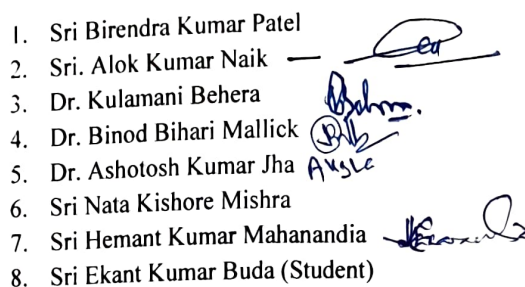 1. Sri Birendra Kumar Patel
2. Sri. Alok Kumar Naik —
3. Dr. Kulamani Behera
4. Dr. Binod Bihari Mallick
5. Dr. Ashotosh Kumar Jha
6. Sri Nata Kishore Mishra
7. Sri Hemant Kumar Mahanandia
8. Sri Ekant Kumar Buda (Student)